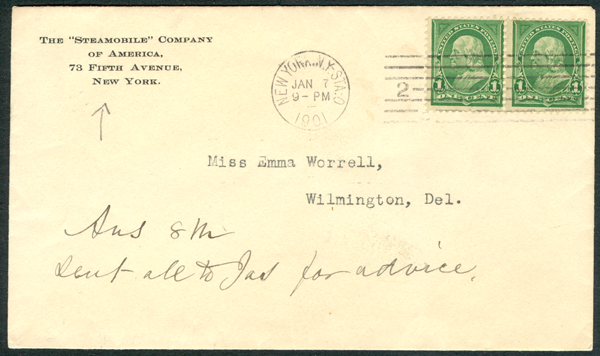 The "Steamobile" Company
of America,
73 Fifth Avenue,
New York.
NEW YORK, N.Y. STA. O
JAN 7
9-PM
1901
2
UNITED STATES POSTAGE
1 ONE CENT 1
UNITED STATES POSTAGE
1 ONE CENT 1
Miss Emma Worrell,
Wilmington, Del.
Ans
Sent all to Jas for advice.